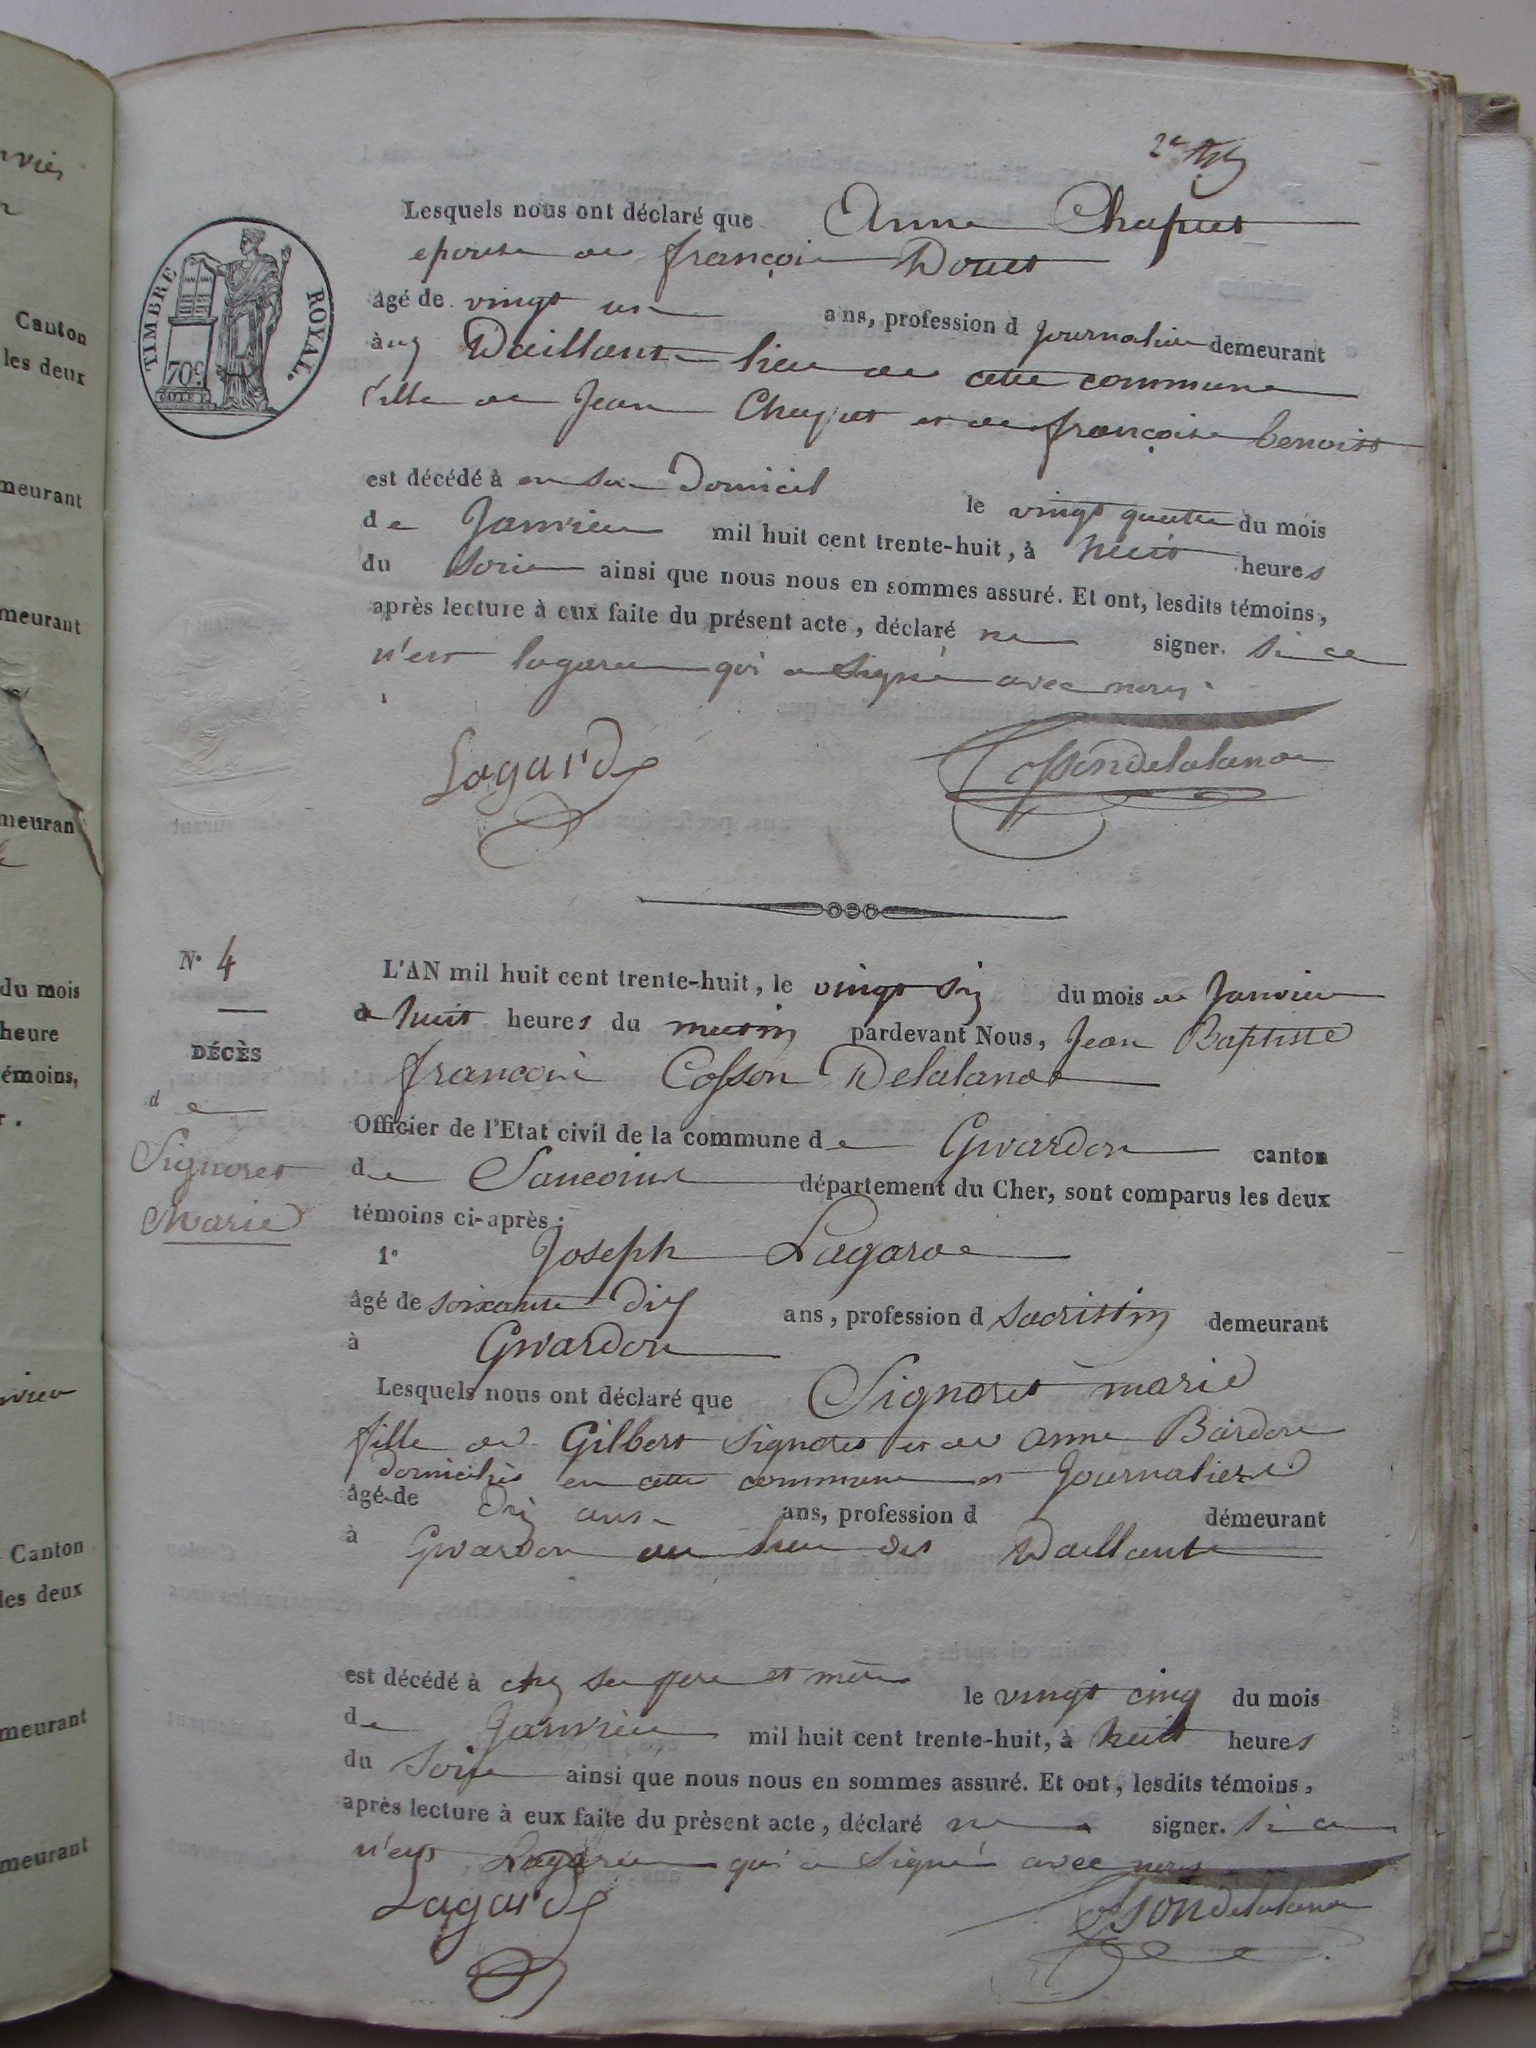 nvier
Canton
les deux
meurant
meurant
meuran
du mois
heure
émoins,
Canton
les deux
meurant
meurant
2e
TIMBRE ROYAL.
70c.
Lesquels nous ont déclaré que Anne Chapuet
epouse de françois Douet
âgé de vingt un ans, profession d journaliere demeurant
àux Daillants lieu de cette commune
fille de Jean Chapuet et de françoise benoist
est décédé à en son Domicil le vingt quatre du mois
de Janvier mil huit cent trente-huit, à huit heures
du Soire ainsi que nous nous en sommes assuré. Et ont, lesdits témoins,
après lecture à eux faite du présent acte, déclaré ne signer. Si ce
n'est lagarde qui a Signé avec nous.
Lagarde Cossondelalande
N° 4
DÉCÈS
de
Signoret
Marie
L'AN mil huit cent trente-huit, le vingt Six du mois de Janvier
à huit heures du matin pardevant Nous, Jean Baptiste
françois Cosson Delalande
Officier de l'Etat civil de la commune de Givardon canton
de Sancoins département du Cher, sont comparus les deux
témoins ci-après:
1° Joseph Lagarde
âgé de soixante Dix ans, profession d Sacristin demeurant
à Givardon
Lesquels nous ont déclaré que Signoret marie
fille de Gilbert Signoret et de anne Bardon
domiciliés en cette commune et Journaliere
âgé de Dix ans ans, profession d démeurant
à Givardon au lieu des Daillants
est décédé à chez Se pere et mère le vingt cinq du mois
de Janvier mil huit cent trente-huit, à huit heures
du Soire ainsi que nous nous en sommes assuré. Et ont, lesdits témoins,
après lecture à eux faite du prèsent acte, déclaré ne signer. Si ce
n'est Lagarde qui a Signé avec nous
Lagarde Cossondelalande